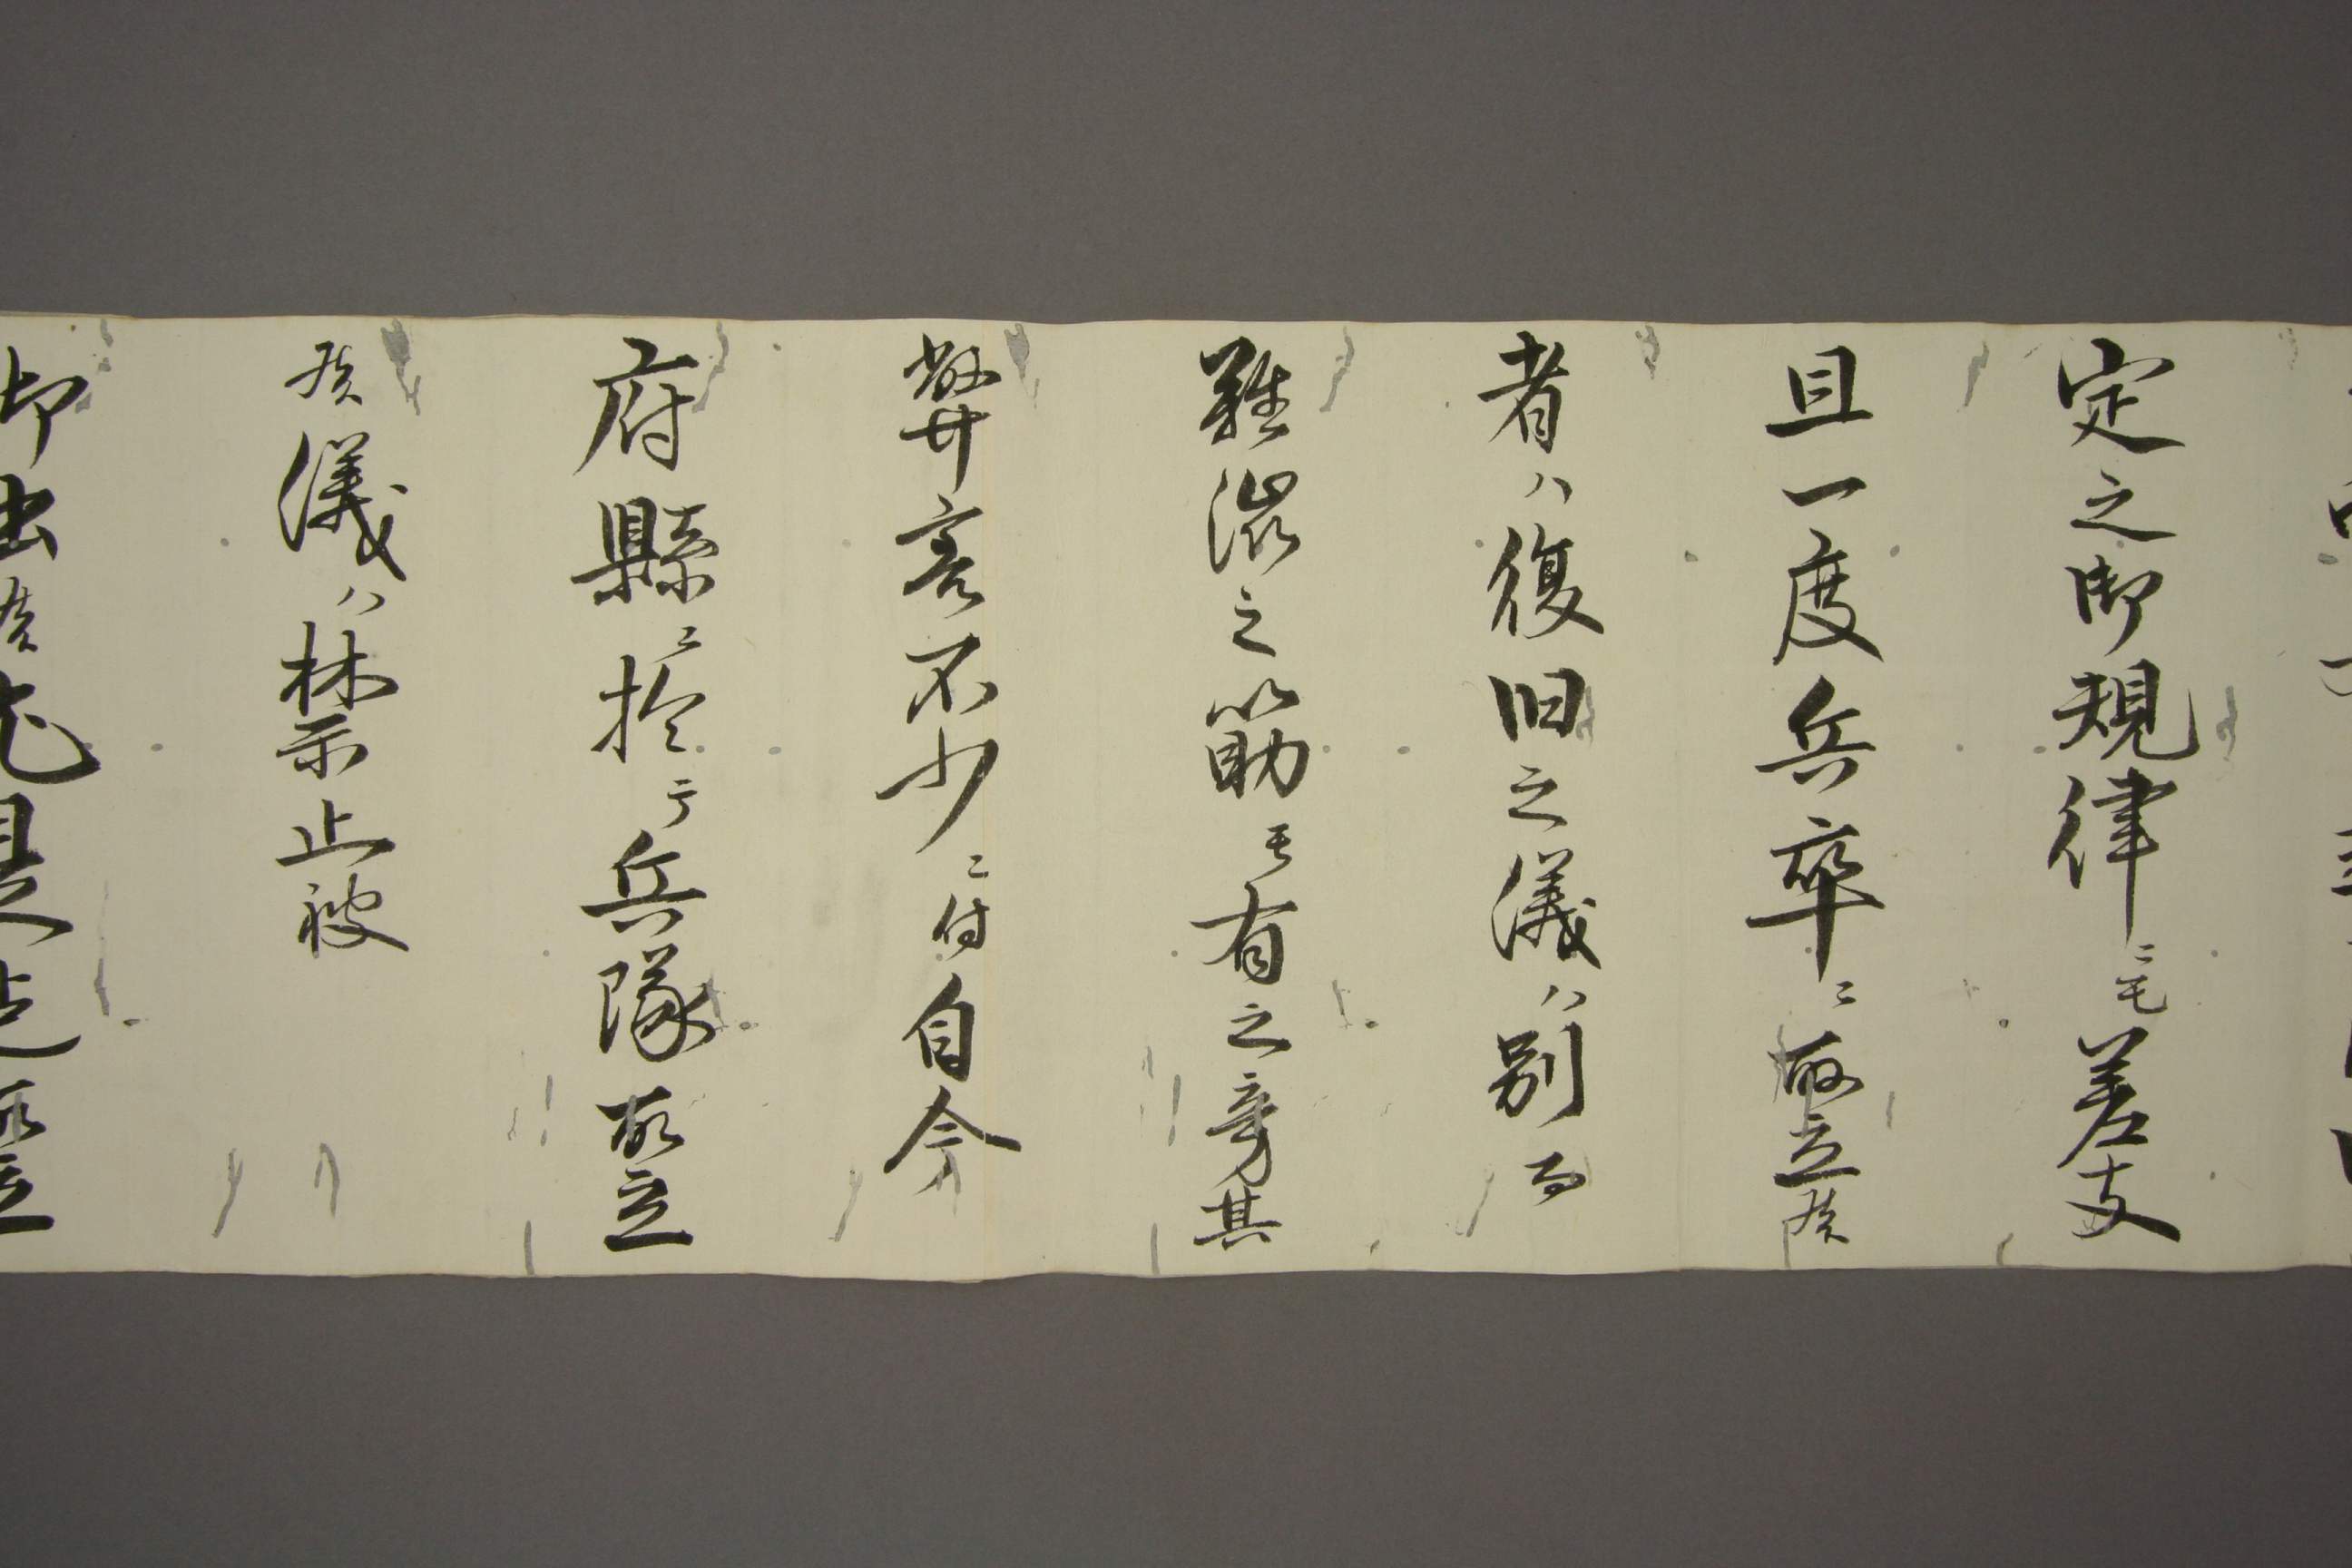 定之御規律ニモ差支
且一度兵卒ニ取立候
者ハ復旧之儀ハ別而
難渋之筋モ有之旁其
弊害不少ニ付自今
府縣ニ於テ兵隊取立
候儀ハ禁止被
仰出候尤是迄取立